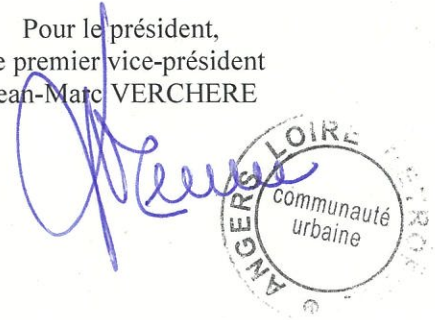 Pour le président,
e premier vice-président
ean-Marc VERCHERE
ANGERS LOIRE
communauté
urbaine